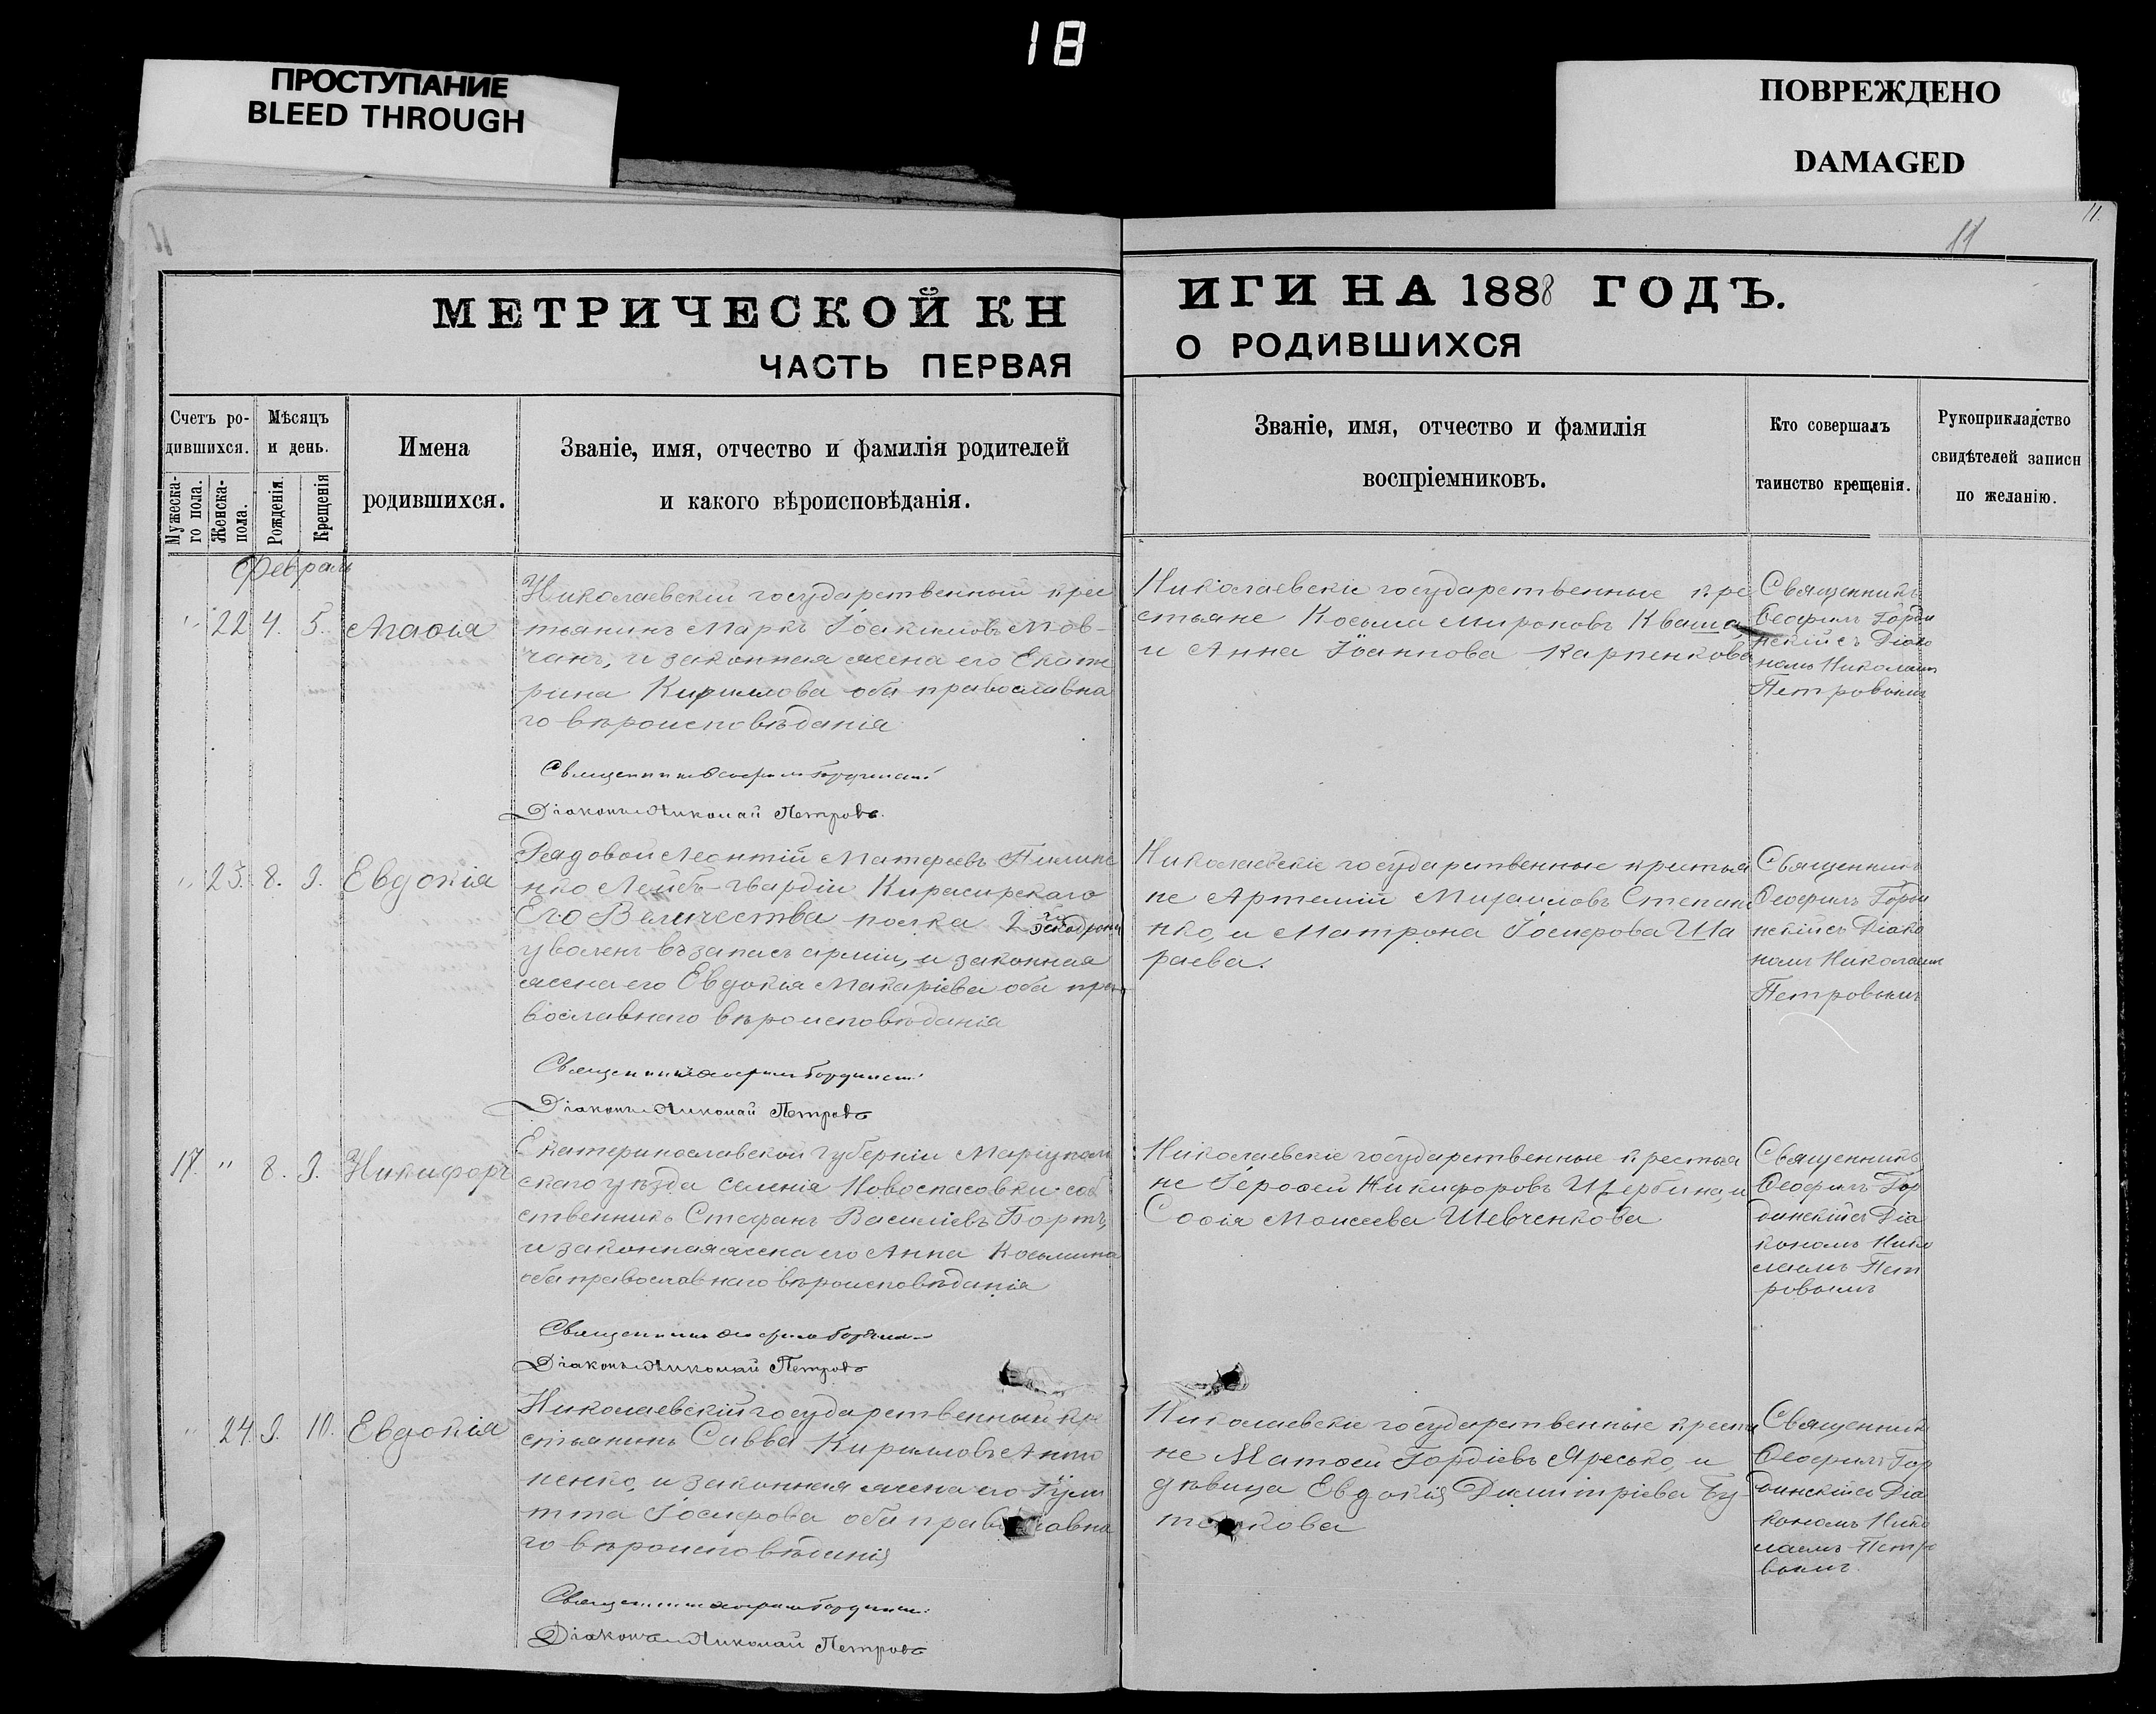 18
ПРОСТУПАНИЕ
BLEED THROUGH
ПОВРЕЖДЕНО
DAMAGED
11.
11
МЕТРИЧЕСКОЙ КН
ИГИ НА 1888 ГОДЪ.
ЧАСТЬ ПЕРВАЯ
О РОДИВШИХСЯ
Счетъ ро-
дившихся.
Мужеска-
го пола.
Женска-
пола.
Мѣсяцъ
и день.
Рожденія.
Крещенія
Имена
родившихся.
Званіе, имя, отчество и фамилія родителей
и какого вѣроисповѣданія.
Званіе, имя, отчество и фамилія
воспріемниковъ.
Кто совершалъ
таинство крещенія.
Рукоприкладство
свидѣтелей записи
по желанію.
Февраль
" 22 4. 5. Агаѳія
Николаевскій государственный крес
тьянинъ Маркъ Іоакимовъ Мов-
чанъ, и законная жена его Екате
рина Кириллова оба православна
го вѣроисповѣданія
Священникъ Ѳеофилъ Гординскій
Діаконъ Николай Петровъ.
Николаевскіе государственные кре
стьяне Косьма Мироновъ Кваша,
и Анна Іоаннова Карпенкова
Священникъ
Ѳеофилъ Горди
нскій съ Діако
номъ Николаемъ
Петровымъ
" 23. 8. 9. Евдокія
Рядовой Леонтій Матѳеевъ
нко Лейбъ-Гвардіи Кирасирскаго
Его Величества полка 2 го эскадрона
уволенъ въ запасъ арміи, и законная
жена его Евдокія Макаріева оба пра
вославнаго вѣроисповѣданія
Священникъ Ѳеофилъ Гординскій
Діаконъ Николай Петровъ
Николаевскіе государственные крестья
не Артемій Михаиловъ Степане
нко, и Матрона Іосифова Ша
раева.
Священникъ
Ѳеофилъ Горди
нскій съ Діако
номъ Николаемъ
Петровымъ
17. " 8. 9. Никифоръ
Екатеринославской губерніи Маріуполь
скаго уѣзда селенія Новоспасовки соб
ственникъ Стефанъ Василіевъ Бортъ,
и законная жена его Анна Косьмина
оба православнаго вѣроисповѣданія
Священникъ Ѳеофилъ Гординскій
Діаконъ Николай Петровъ
Николаевскіе государственные крестья
не Іероѳей Никифоровъ Щербина и
Софія Моисеева Шевченкова
Священникъ
Ѳеофилъ Гор
динскій съ Діа
кономъ Нико
лаемъ Пет
ровымъ
" 24. 9. 10. Евдокія
Николаевскій государственный кре
стьянинъ Савва Кирилловъ
ненко, и законная жена его Іули
тта Іосифова оба православна
го вѣроисповѣданія
Священникъ Ѳеофилъ Гординскій
Діаконъ Николай Петровъ
Николаевскіе государственные крестья
не Матѳей Гордіевъ Яресько, и
дѣвица Евдокія Димитріева
Священникъ
Ѳеофилъ Гор
динскій съ Діа
кономъ Нико
лаемъ Петро
вымъ.